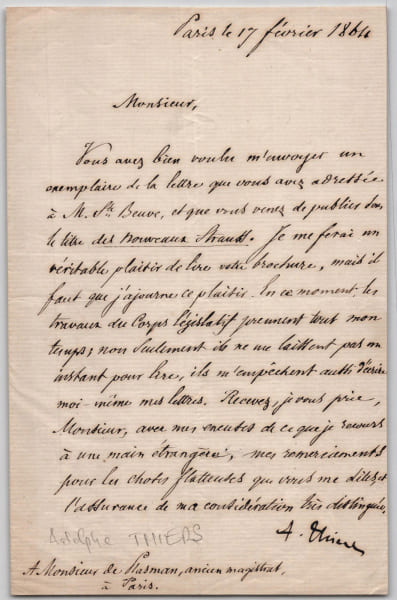 Paris le 17 février 1864
Monsieur,
Vous avez bien voulu m'envoyer un
exemplaire de la lettre que vous avez adressée
à M. Ste Beuve, et que vous venez de publier sous
le titre des nouveaux Strauss. Je me ferai un
véritable plaisir de lire votre brochure, mais il
faut que j'ajourne ce plaisir. En ce moment, les
travaux du Corps législatif prennent tout mon
temps; non seulement ils ne me laissent pas un
instant pour lire, ils m'empêchent aussi d'écrire
moi-même mes lettres. Recevez, je vous prie,
Monsieur, avec mes excuses de ce que je recours
à une main étrangère, mes remerciements
pour les choses flatteuses que vous me dites, et
l'assurance de ma considération très distinguée.
A. Thiers
Adolphe THIERS
A Monsieur de Plasman, ancien magistrat,
à Paris.